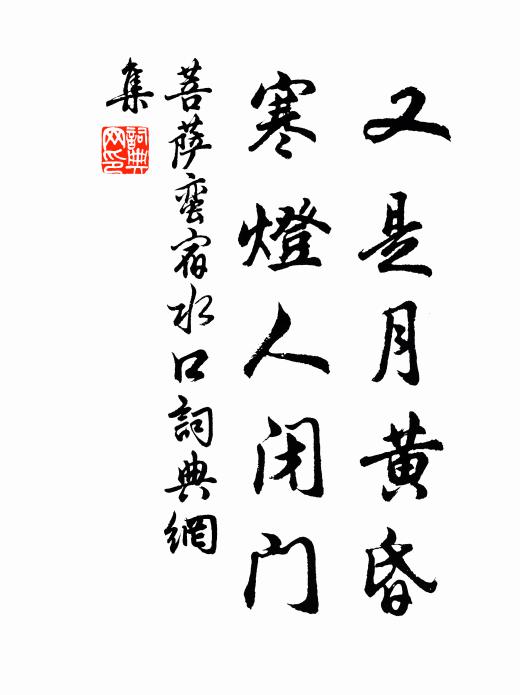 又是月黄昏
寒燈人闭门
菩薩蠻宿水口詞典網
集
詞典網印